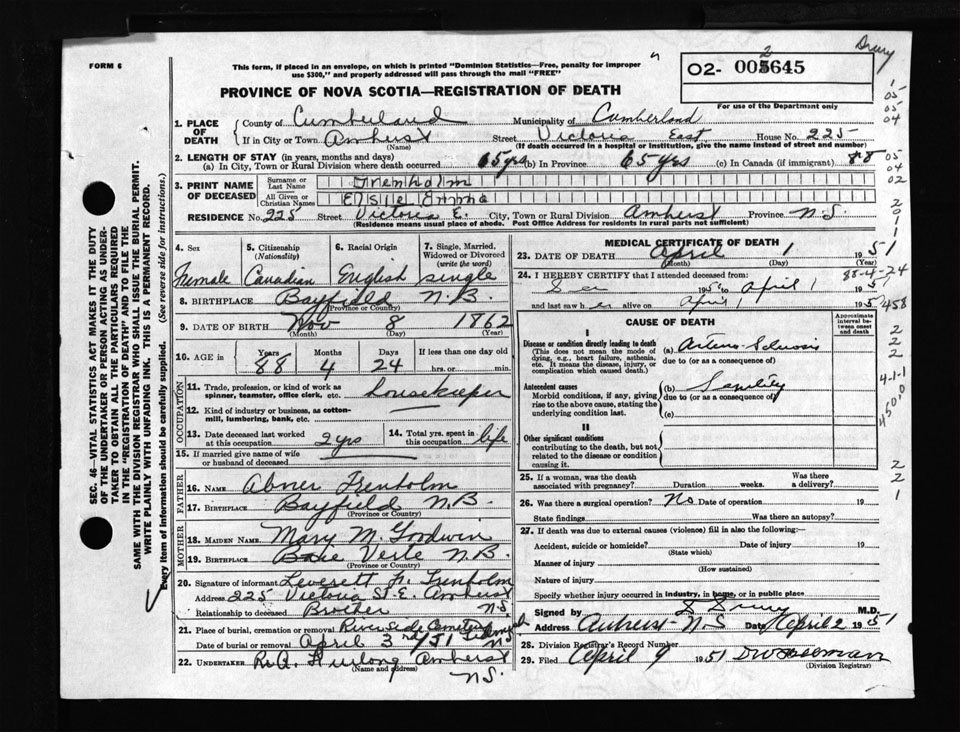 Drury
FORM 6
This form, if placed in an envelope, on which is printed "Dominion Statistics—Free, penalty for improper
use $300," and properly addressed will pass through the mail "FREE"
PROVINCE OF NOVA SCOTIA—REGISTRATION OF DEATH
02- 005645
2
For use of the Department only
1. PLACE OF DEATH
County of Cumberland Municipality of Cumberland
If in City or Town Amherst Street Victoria East House No. 225
(Name) (If death occurred in a hospital or institution, give the name instead of street and number)
2. LENGTH OF STAY (in years, months and days)
(a) In City, Town or Rural Division where death occurred 65 yrs (b) in Province 65 yrs (c) In Canada (if immigrant) 88
3. PRINT NAME OF DECEASED
Surname or Last Name Trenholm
All Given or Christian Names Elsie Emma
RESIDENCE No. 225 Street Victoria E. City, Town or Rural Division Amherst Province N.S.
(Residence means usual place of abode. Post Office Address for residents in rural parts not sufficient)
4. Sex Female
5. Citizenship (Nationality) Canadian
6. Racial Origin English
7. Single, Married, Widowed or Divorced (write the word) single
8. BIRTHPLACE Bayfield N.B.
(Province or Country)
9. DATE OF BIRTH Nov 8 1862
(Month) (Day) (Year)
10. AGE in Years 88 Months 4 Days 24 If less than one day old
hrs. or min.
OCCUPATION
11. Trade, profession, or kind of work as spinner, teamster, office clerk, etc. housekeeper
12. Kind of industry or business, as cotton-mill, lumbering, bank, etc.
13. Date deceased last worked at this occupation 2 yrs
14. Total yrs. spent in this occupation life
15. If married give name of wife or husband of deceased
FATHER
16. NAME Abner Trenholm
17. BIRTHPLACE Bayfield N.B.
(Province or Country)
MOTHER
18. MAIDEN NAME Mary M. Goodwin
19. BIRTHPLACE Baie Verte N.B.
(Province or Country)
20. Signature of informant Leverett Trenholm
Address 225 Victoria St. E. Amherst
Relationship to deceased Brother N.S.
21. Place of burial, cremation or removal Riverside Cemetery
Date of burial or removal April 3rd/51
22. UNDERTAKER Furlong Amherst
(Name and address) N.S.
MEDICAL CERTIFICATE OF DEATH
23. DATE OF DEATH April 1 1951
(Month) (Day) (Year)
88-4-24
24. I HEREBY CERTIFY that I attended deceased from
to April 1 1951
and last saw her alive on April 1 195
458
CAUSE OF DEATH
Approximate interval between onset and death
I
Disease or condition directly leading to death
(This does not mean the mode of dying, e.g., heart failure, asthenia, etc. It means the disease, injury, or complication which caused death.)
(a) Arterio-Sclerosis
due to (or as a consequence of)
Antecedent causes
Morbid conditions, if any, giving rise to the above cause, stating the underlying condition last.
(b) Senility
due to (or as a consequence of)
(c)
II
Other significant conditions
contributing to the death, but not related to the disease or condition causing it.
25. If a woman, was the death associated with pregnancy? Duration weeks. Was there a delivery?
26. Was there a surgical operation? No Date of operation 19
State findings Was there an autopsy?
27. If death was due to external causes (violence) fill in also the following:—
Accident, suicide or homicide? Date of injury 19
(State which)
Manner of injury
(How sustained)
Nature of injury
Specify whether injury occurred in industry, in home, or in public place
Signed by Drury M.D.
Address Amherst N.S Date April 2 1951
28. Division Registrar's Record Number
29. Filed April 9 1951
(Division Registrar)
SEC. 46—VITAL STATISTICS ACT MAKES IT THE DUTY
OF THE UNDERTAKER OR PERSON ACTING AS UNDER-
TAKER TO OBTAIN ALL THE PARTICULARS REQUIRED
IN THE "REGISTRATION OF DEATH" AND TO FILE THE
SAME WITH THE DIVISION REGISTRAR WHO SHALL ISSUE THE BURIAL PERMIT.
WRITE PLAINLY WITH UNFADING INK. THIS IS A PERMANENT RECORD.
Every item of information should be carefully supplied. (See reverse side for instructions.)